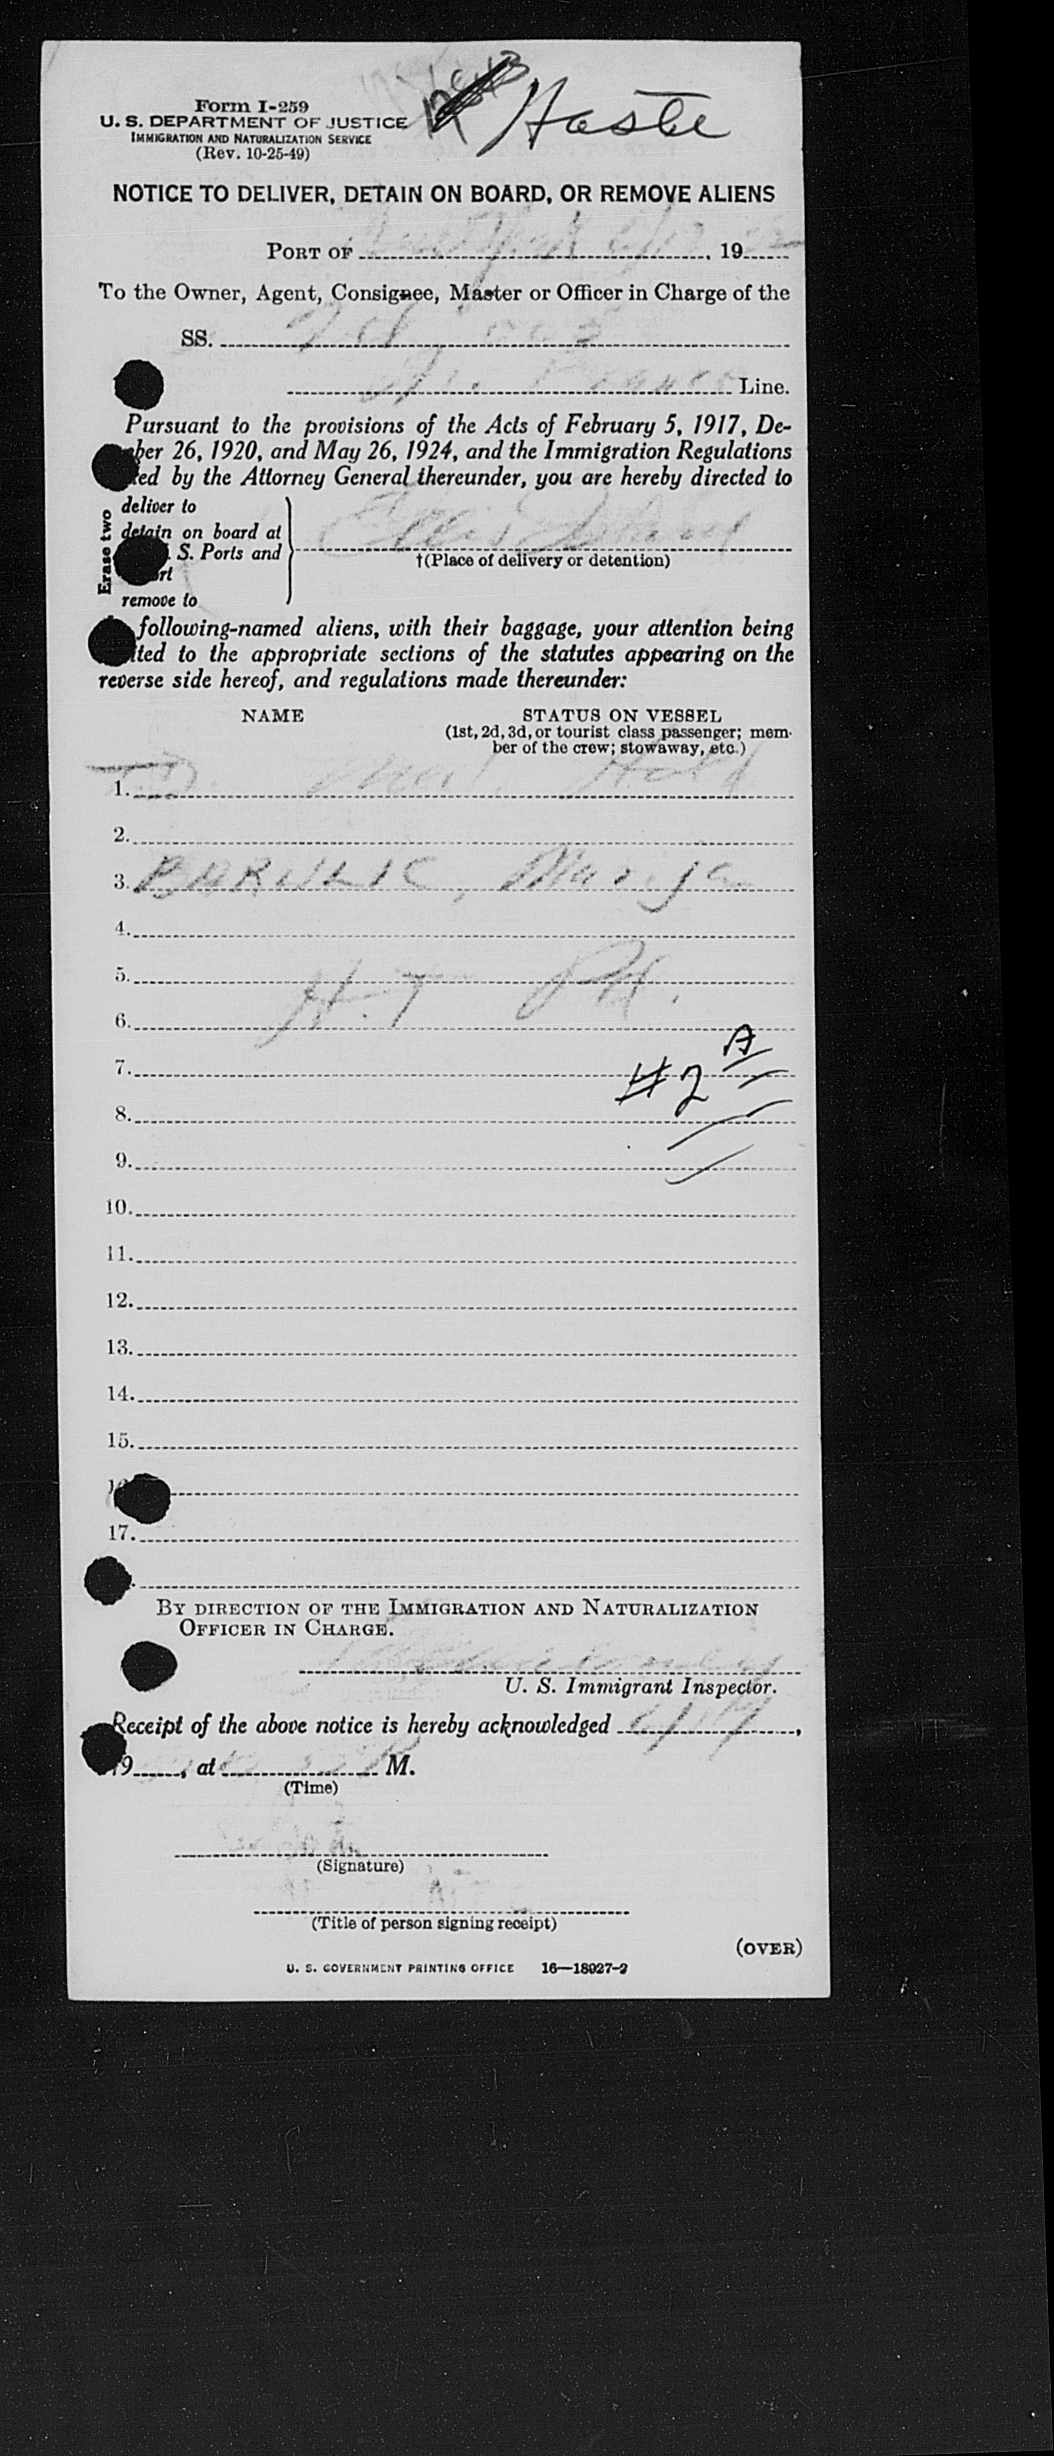 Haste
Form I-259
U. S. DEPARTMENT OF JUSTICE
IMMIGRATION AND NATURALIZATION SERVICE
(Rev. 10-25-49)
NOTICE TO DELIVER, DETAIN ON BOARD, OR REMOVE ALIENS
PORT OF New York , 19
To the Owner, Agent, Consignee, Master or Officer in Charge of the
SS.
Line.
Pursuant to the provisions of the Acts of February 5, 1917, De-
ber 26, 1920, and May 26, 1924, and the Immigration Regulations
ed by the Attorney General thereunder, you are hereby directed to
Erase two
deliver to
detain on board at
S. Ports and
rt
remove to
Ellis Island
†(Place of delivery or detention)
following-named aliens, with their baggage, your attention being
ted to the appropriate sections of the statutes appearing on the
reverse side hereof, and regulations made thereunder:
NAME STATUS ON VESSEL
(1st, 2d, 3d, or tourist class passenger; mem-
ber of the crew; stowaway, etc.)
1. Hold
2.
3. Marija
4.
5.
6.
7. #2 A
8.
9.
10.
11.
12.
13.
14.
15.
17.
BY DIRECTION OF THE IMMIGRATION AND NATURALIZATION
OFFICER IN CHARGE.
U. S. Immigrant Inspector.
Receipt of the above notice is hereby acknowledged ,
19 , at M.
(Time)
(Signature)
(Title of person signing receipt)
(OVER)
U. S. GOVERNMENT PRINTING OFFICE 16—18927-2